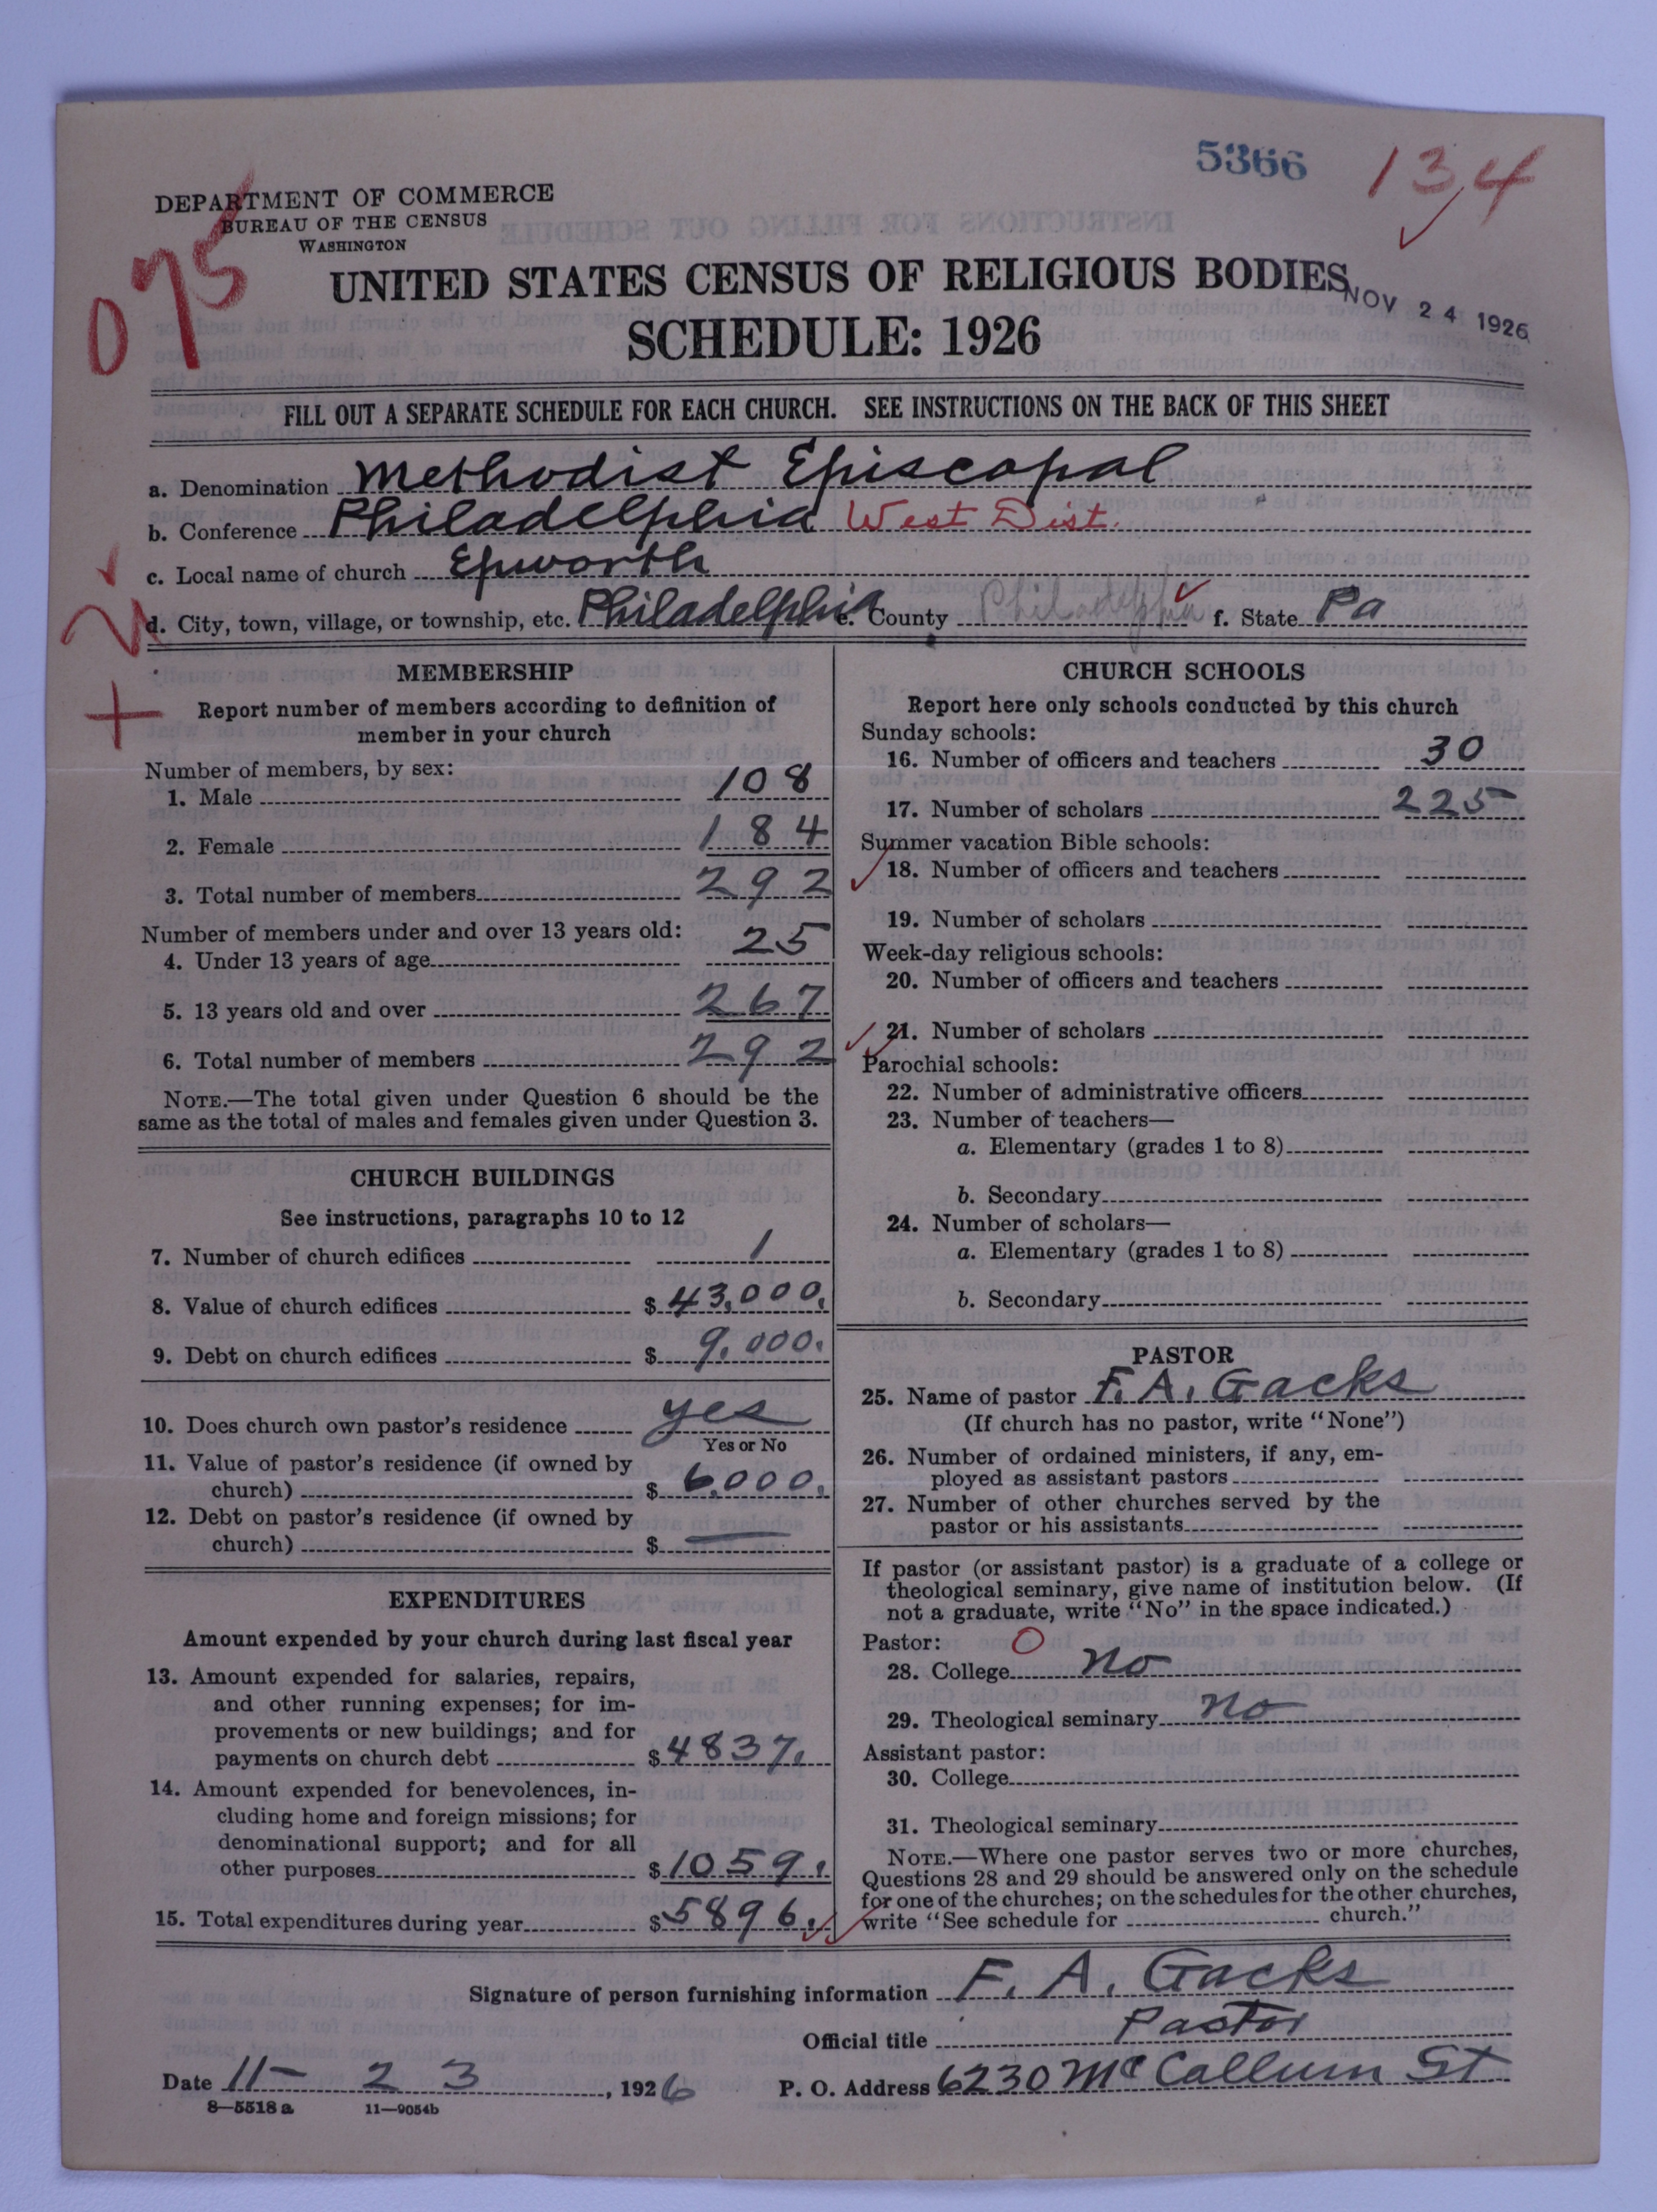 5366
134
DEPARTMENT OF COMMERCE
BUREAU OF THE CENSUS
WASHINGTON
075
UNITED STATES CENSUS OF RELIGIOUS BODIES
NOV 24 1926
SCHEDULE: 1926
FILL OUT A SEPARATE SCHEDULE FOR EACH CHURCH. SEE INSTRUCTIONS ON THE BACK OF THIS SHEET
a. Denomination Methodist Episcopal
b. Conference Philadelphia West Dist.
c. Local name of church Epworth
d. City, town, village, or township, etc. Philadelphia e. County Philadelphia f. State Pa
MEMBERSHIP
Report number of members according to definition of
member in your church
Number of members, by sex:
1. Male 108
2. Female 184
3. Total number of members 292
Number of members under and over 13 years old:
4. Under 13 years of age 25
5. 13 years old and over 267
6. Total number of members 292
NOTE.—The total given under Question 6 should be the
same as the total of males and females given under Question 3.
CHURCH BUILDINGS
See instructions, paragraphs 10 to 12
7. Number of church edifices 1
8. Value of church edifices $ 43,000.
9. Debt on church edifices $ 9,000.
10. Does church own pastor's residence yes
Yes or No
11. Value of pastor's residence (if owned by
church) $ 6,000.
12. Debt on pastor's residence (if owned by
church) $ —
EXPENDITURES
Amount expended by your church during last fiscal year
13. Amount expended for salaries, repairs,
and other running expenses; for im-
provements or new buildings; and for
payments on church debt $ 4837.
14. Amount expended for benevolences, in-
cluding home and foreign missions; for
denominational support; and for all
other purposes $ 1059.
15. Total expenditures during year $ 5896.
CHURCH SCHOOLS
Report here only schools conducted by this church
Sunday schools:
16. Number of officers and teachers 30
17. Number of scholars 225
Summer vacation Bible schools:
18. Number of officers and teachers
19. Number of scholars
Week-day religious schools:
20. Number of officers and teachers
21. Number of scholars
Parochial schools:
22. Number of administrative officers
23. Number of teachers—
a. Elementary (grades 1 to 8)
b. Secondary
24. Number of scholars—
a. Elementary (grades 1 to 8)
b. Secondary
PASTOR
25. Name of pastor F. A. Gacks
(If church has no pastor, write "None")
26. Number of ordained ministers, if any, em-
ployed as assistant pastors
27. Number of other churches served by the
pastor or his assistants
If pastor (or assistant pastor) is a graduate of a college or
theological seminary, give name of institution below. (If
not a graduate, write "No" in the space indicated.)
Pastor: O
28. College no
29. Theological seminary no
Assistant pastor:
30. College
31. Theological seminary
NOTE.—Where one pastor serves two or more churches,
Questions 28 and 29 should be answered only on the schedule
for one of the churches; on the schedules for the other churches,
write "See schedule for church."
Signature of person furnishing information F. A. Gacks
Official title Pastor
Date 11-23, 1926 P. O. Address 6230 McCallum St
8—5518 a 11—9054b